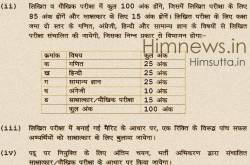 (ii) लिखित व मौखिक परीक्षा में कुल 100 अंक होंगे, जिसमें लिखित परीक्षा के लिए
85 अंक होंगे और साक्षात्कार के लिए 15 अंक होंगे। लिखित परीक्षा के लिए कक्षा
स्तर के गणित, अंग्रेजी, हिन्दी और सामान्य ज्ञान के विषयों से लिखित
परीक्षा संचालित की जायेगी, जिसका निम्न प्रकार से विभाजन होगाः-
Himnews.in
Himsutta.in
क्रमांक विषय कुल अंक
क गणित 25 अंक
ख हिन्दी 25 अंक
ग सामान्य ज्ञान 25 अंक
घ अंग्रेजी 10 अंक
ङ साक्षात्कार/मौखिक परीक्षा 15 अंक
कुल अंक 100 अंक
(iii) लिखित परीक्षा में बनाई गई मैरिट के आधार पर, एक रिक्ति के विरूद्ध पांच सफल
अभ्यर्थियों को साक्षात्कार के लिए बुलाया जायेगा।
(iv) पद पर नियुक्ति के लिए अंतिम चयन, भर्ती अभिकरण द्वारा संचालित
साक्षात्कार/मौखिक परीक्षा के आधार पर किया जायेगा।